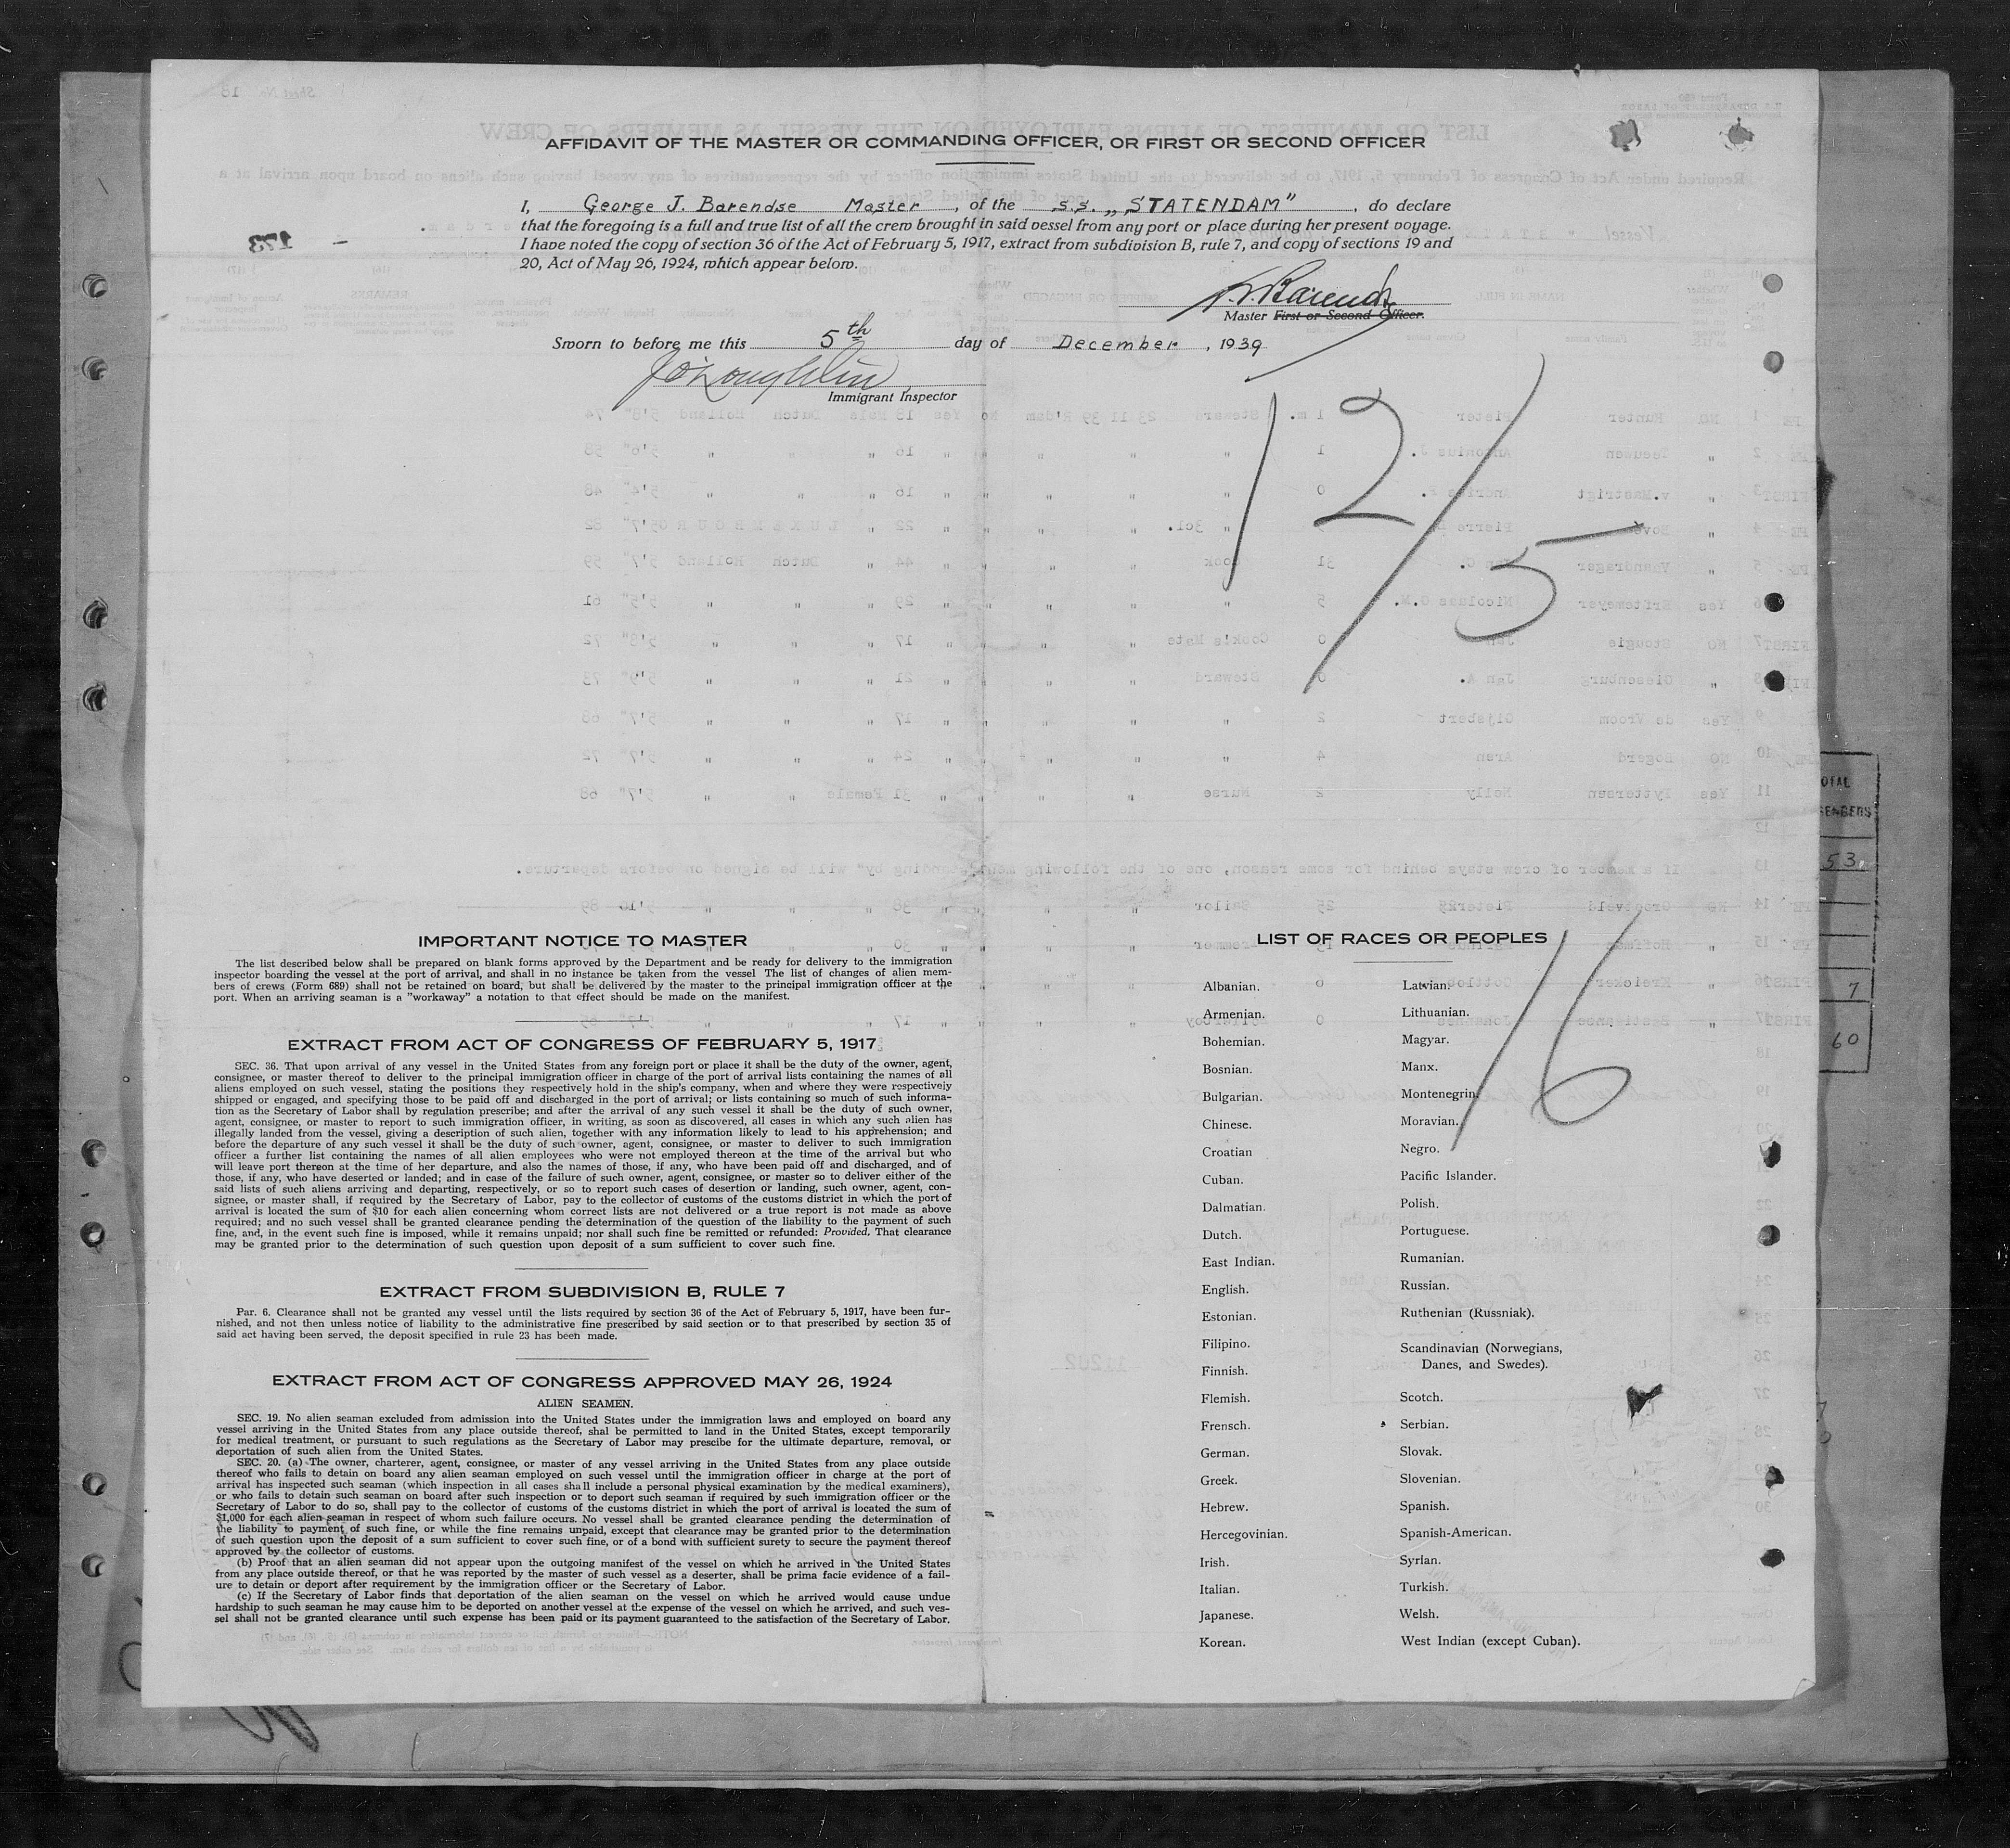 AFFIDAVIT OF THE MASTER OR COMMANDING OFFICER, OR FIRST OR SECOND OFFICER
I, George J. Barendse Master, of the s.s. „STATENDAM", do declare
that the foregoing is a full and true list of all the crew brought in said vessel from any port or place during her present voyage.
I have noted the copy of section 36 of the Act of February 5, 1917, extract from subdivision B, rule 7, and copy of sections 19 and
20, Act of May 26, 1924, which appear below.
Master First or Second Officer.
Sworn to before me this 5th day of December, 1939
Immigrant Inspector
12/5
16
IMPORTANT NOTICE TO MASTER
The list described below shall be prepared on blank forms approved by the Department and be ready for delivery to the immigration
inspector boarding the vessel at the port of arrival, and shall in no instance be taken from the vessel The list of changes of alien mem-
bers of crews (Form 689) shall not be retained on board, but shall be delivered by the master to the principal immigration officer at the
port. When an arriving seaman is a "workaway" a notation to that effect should be made on the manifest.
EXTRACT FROM ACT OF CONGRESS OF FEBRUARY 5, 1917
SEC. 36. That upon arrival of any vessel in the United States from any foreign port or place it shall be the duty of the owner, agent,
consignee, or master thereof to deliver to the principal immigration officer in charge of the port of arrival lists containing the names of all
aliens employed on such vessel, stating the positions they respectively hold in the ship's company, when and where they were respectively
shipped or engaged, and specifying those to be paid off and discharged in the port of arrival; or lists containing so much of such informa-
tion as the Secretary of Labor shall by regulation prescribe; and after the arrival of any such vessel it shall be the duty of such owner,
agent, consignee, or master to report to such immigration officer, in writing, as soon as discovered, all cases in which any such alien has
illegally landed from the vessel, giving a description of such alien, together with any information likely to lead to his apprehension; and
before the departure of any such vessel it shall be the duty of such owner, agent, consignee, or master to deliver to such immigration
officer a further list containing the names of all alien employees who were not employed thereon at the time of the arrival but who
will leave port thereon at the time of her departure, and also the names of those, if any, who have been paid off and discharged, and of
those, if any, who have deserted or landed; and in case of the failure of such owner, agent, consignee, or master so to deliver either of the
said lists of such aliens arriving and departing, respectively, or so to report such cases of desertion or landing, such owner, agent, con-
signee, or master shall, if required by the Secretary of Labor, pay to the collector of customs of the customs district in which the port of
arrival is located the sum of $10 for each alien concerning whom correct lists are not delivered or a true report is not made as above
required; and no such vessel shall be granted clearance pending the determination of the question of the liability to the payment of such
fine, and, in the event such fine is imposed, while it remains unpaid; nor shall such fine be remitted or refunded: Provided, That clearance
may be granted prior to the determination of such question upon deposit of a sum sufficient to cover such fine.
EXTRACT FROM SUBDIVISION B, RULE 7
Par. 6. Clearance shall not be granted any vessel until the lists required by section 36 of the Act of February 5, 1917, have been fur-
nished, and not then unless notice of liability to the administrative fine prescribed by said section or to that prescribed by section 35 of
said act having been served, the deposit specified in rule 23 has been made.
EXTRACT FROM ACT OF CONGRESS APPROVED MAY 26, 1924
ALIEN SEAMEN.
SEC. 19. No alien seaman excluded from admission into the United States under the immigration laws and employed on board any
vessel arriving in the United States from any place outside thereof, shal be permitted to land in the United States, except temporarily
for medical treatment, or pursuant to such regulations as the Secretary of Labor may prescibe for the ultimate departure, removal, or
deportation of such alien from the United States.
SEC. 20. (a) The owner, charterer, agent, consignee, or master of any vessel arriving in the United States from any place outside
thereof who fails to detain on board any alien seaman employed on such vessel until the immigration officer in charge at the port of
arrival has inspected such seaman (which inspection in all cases shall include a personal physical examination by the medical examiners),
or who fails to detain such seaman on board after such inspection or to deport such seaman if required by such immigration officer or the
Secretary of Labor to do so, shall pay to the collector of customs of the customs district in which the port of arrival is located the sum of
$1,000 for each alien seaman in respect of whom such failure occurs. No vessel shall be granted clearance pending the determination of
the liability to payment of such fine, or while the fine remains unpaid, except that clearance may be granted prior to the determination
of such question upon the deposit of a sum sufficient to cover such fine, or of a bond with sufficient surety to secure the payment thereof
approved by the collector of customs.
(b) Proof that an alien seaman did not appear upon the outgoing manifest of the vessel on which he arrived in the United States
from any place outside thereof, or that he was reported by the master of such vessel as a deserter, shall be prima facie evidence of a fail-
ure to detain or deport after requirement by the immigration officer or the Secretary of Labor.
(c) If the Secretary of Labor finds that deportation of the alien seaman on the vessel on which he arrived would cause undue
hardship to such seaman he may cause him to be deported on another vessel at the expense of the vessel on which he arrived, and such ves-
sel shall not be granted clearance until such expense has been paid or its payment guaranteed to the satisfaction of the Secretary of Labor.
LIST OF RACES OR PEOPLES
Albanian.
Armenian.
Bohemian.
Bosnian.
Bulgarian.
Chinese.
Croatian
Cuban.
Dalmatian.
Dutch.
East Indian.
English.
Estonian.
Filipino.
Finnish.
Flemish.
Frensch.
German.
Greek.
Hebrew.
Hercegovinian.
Irish.
Italian.
Japanese.
Korean.
Latvian.
Lithuanian.
Magyar.
Manx.
Montenegrin.
Moravian.
Negro.
Pacific Islander.
Polish.
Portuguese.
Rumanian.
Russian.
Ruthenian (Russniak).
Scandinavian (Norwegians,
Danes, and Swedes).
Scotch.
Serbian.
Slovak.
Slovenian.
Spanish.
Spanish-American.
Syrian.
Turkish.
Welsh.
West Indian (except Cuban).
53
7
60